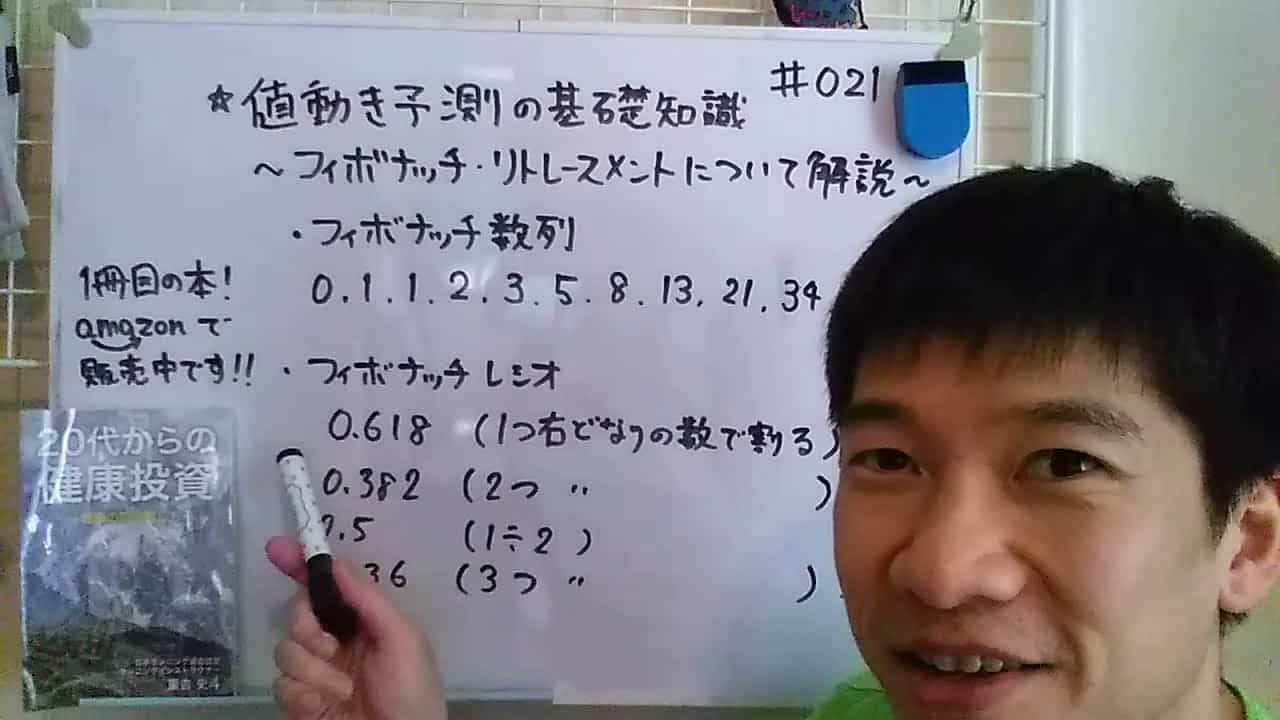 #021
☆値動き予測の基礎知識
~フィボナッチ・リトレースメントについて解説~
・フィボナッチ数列
0.1.1.2.3.5.8.13.21.34
1冊目の本!
amazonで
販売中です!!
・フィボナッチレシオ
0.618 (1つ右どなりの数で割る)
0.382 (2つ 〃 )
.5 (1÷2)
36 (3つ 〃 )
20代からの
健康投資